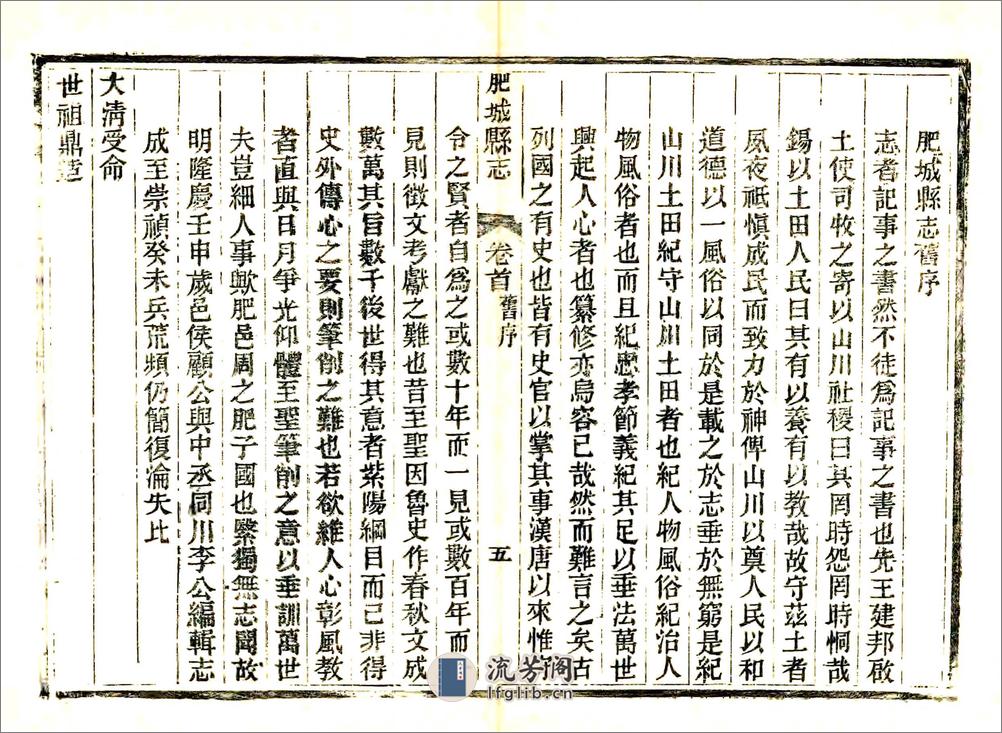 肥城縣志舊序
志者記事之書然不徒爲記事之書也先王建邦啟
土使司牧之寄以山川社稷曰其罔時怨罔時恫哉
錫以土田人民曰其有以養有以教哉故守茲土者
夙夜祗愼咸民而致力於神俾山川以奠人民以和
道德以一風俗以同於是載之於志垂於無窮是紀
山川土田紀守山川土田者也紀人物風俗紀治人
物風俗者也而且紀忠孝節義紀其足以垂法萬世
興起人心者也纂修亦烏容已哉然而難言之矣古
列國之有史也皆有史官以掌其事漢唐以來惟
肥城縣志
卷首
舊序
五
令之賢者自爲之或數十年而一見或數百年而一
見則徵文考獻之難也昔至聖因魯史作春秋文成
數萬其旨數千後世得其意者紫陽綱目而已非得
史外傳心之要則筆削之難也若欲維人心彰風教
者直與日月爭光仰體至聖筆削之意以垂訓萬世
夫豈細人事歟肥邑周之肥子國也繄獨無志聞故
明隆慶壬申歲邑侯顧公與中丞同川李公編輯志
成至崇禎癸未兵荒頻仍簡復淪失比
大淸受命
世祖鼎造
流芳阁
lfglib.cn